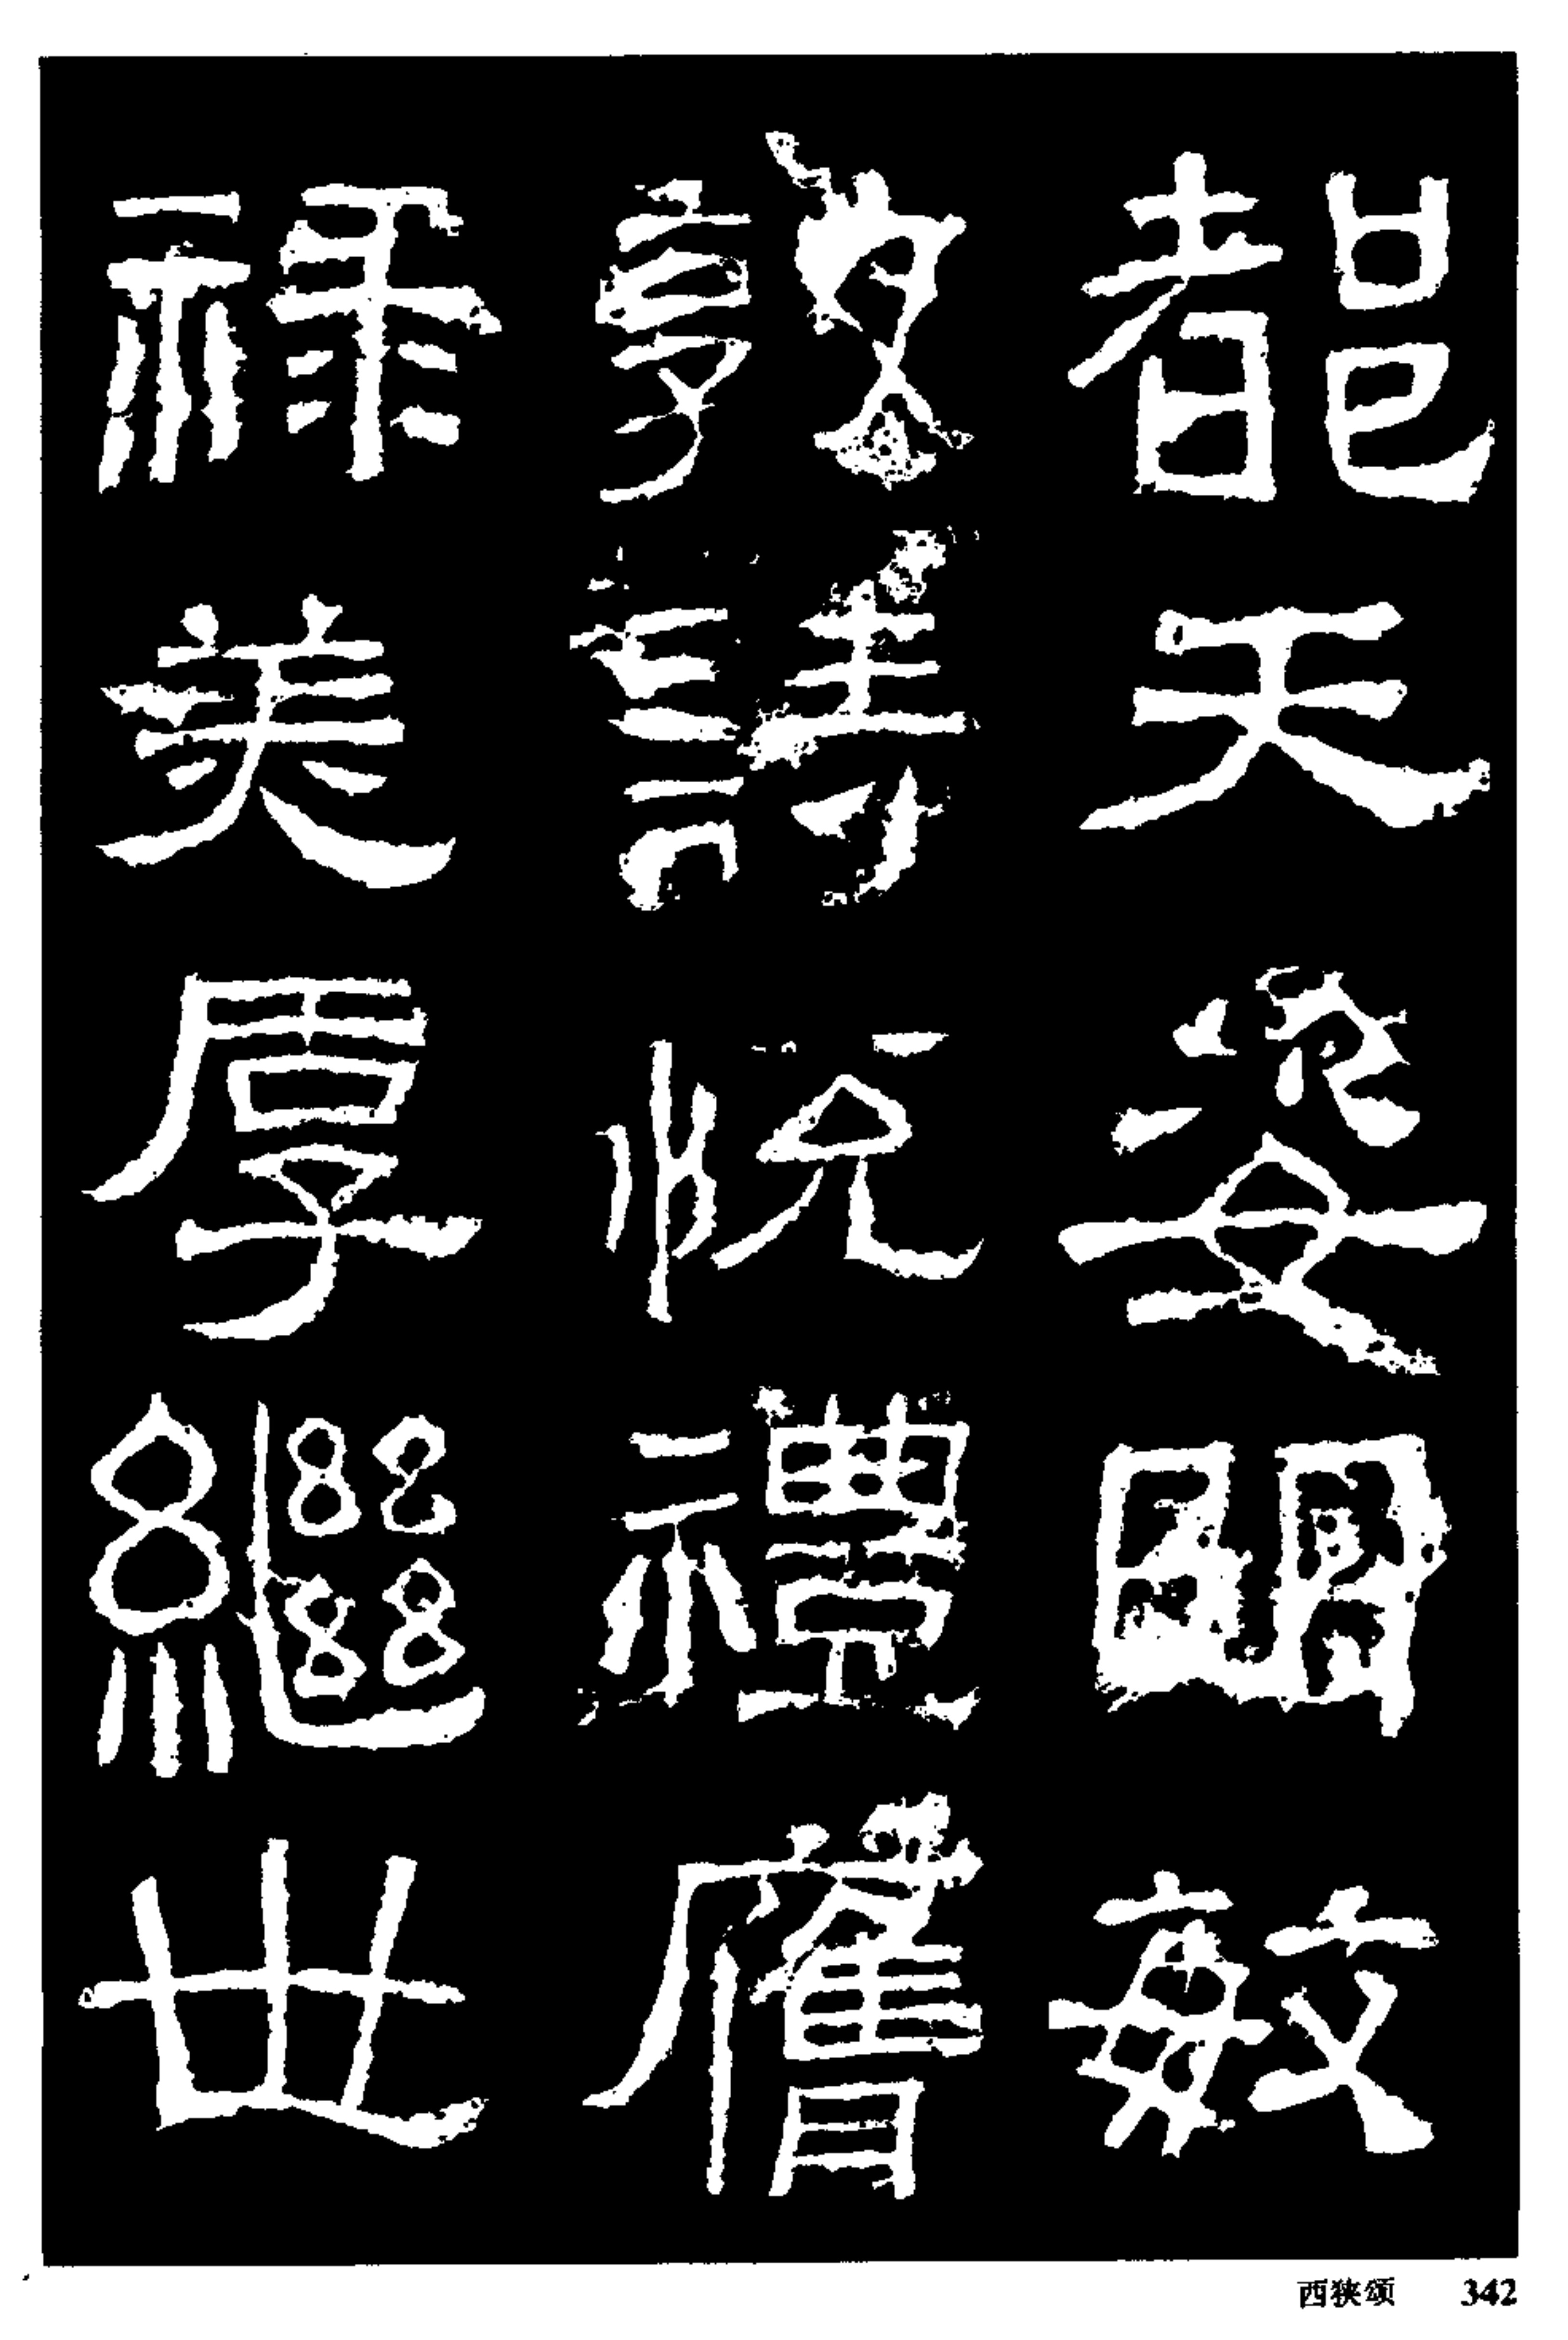 都天姿明敏
敦詩悅禮膺
祿美厚繼世
西狭颂 342